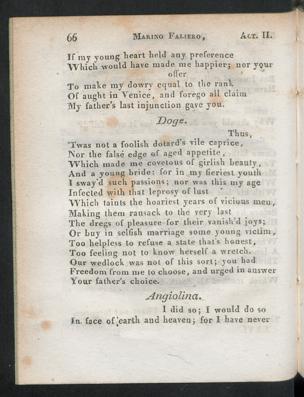 66 MARINO FALIERO, ACT. II.
If my young heart held any preference
Which would have made me happier; nor your
offer
To make my dowry equal to the rank
Of aught in Venice, and forego all claim
My father's last injunction gave you.
Doge.
Thus,
'Twas not a foolish dotard's vile caprice,
Nor the false edge of aged appetite,
Which made me covetous of girlish beauty,
And a young bride: for in my fieriest youth
I sway'd such passions; nor was this my age
Infected with that leprosy of lust
Which taints the hoariest years of vicious men,
Making them ransack to the very last
The dregs of pleasure for their vanish'd joys;
Or buy in selfish marriage some young victim,
Too helpless to refuse a state that's honest,
Too feeling not to know herself a wretch.
Our wedlock was not of this sort; you had
Freedom from me to choose, and urged in answer
Your father's choice.
Angiolina.
I did so; I would do so
In face of earth and heaven; for I have never